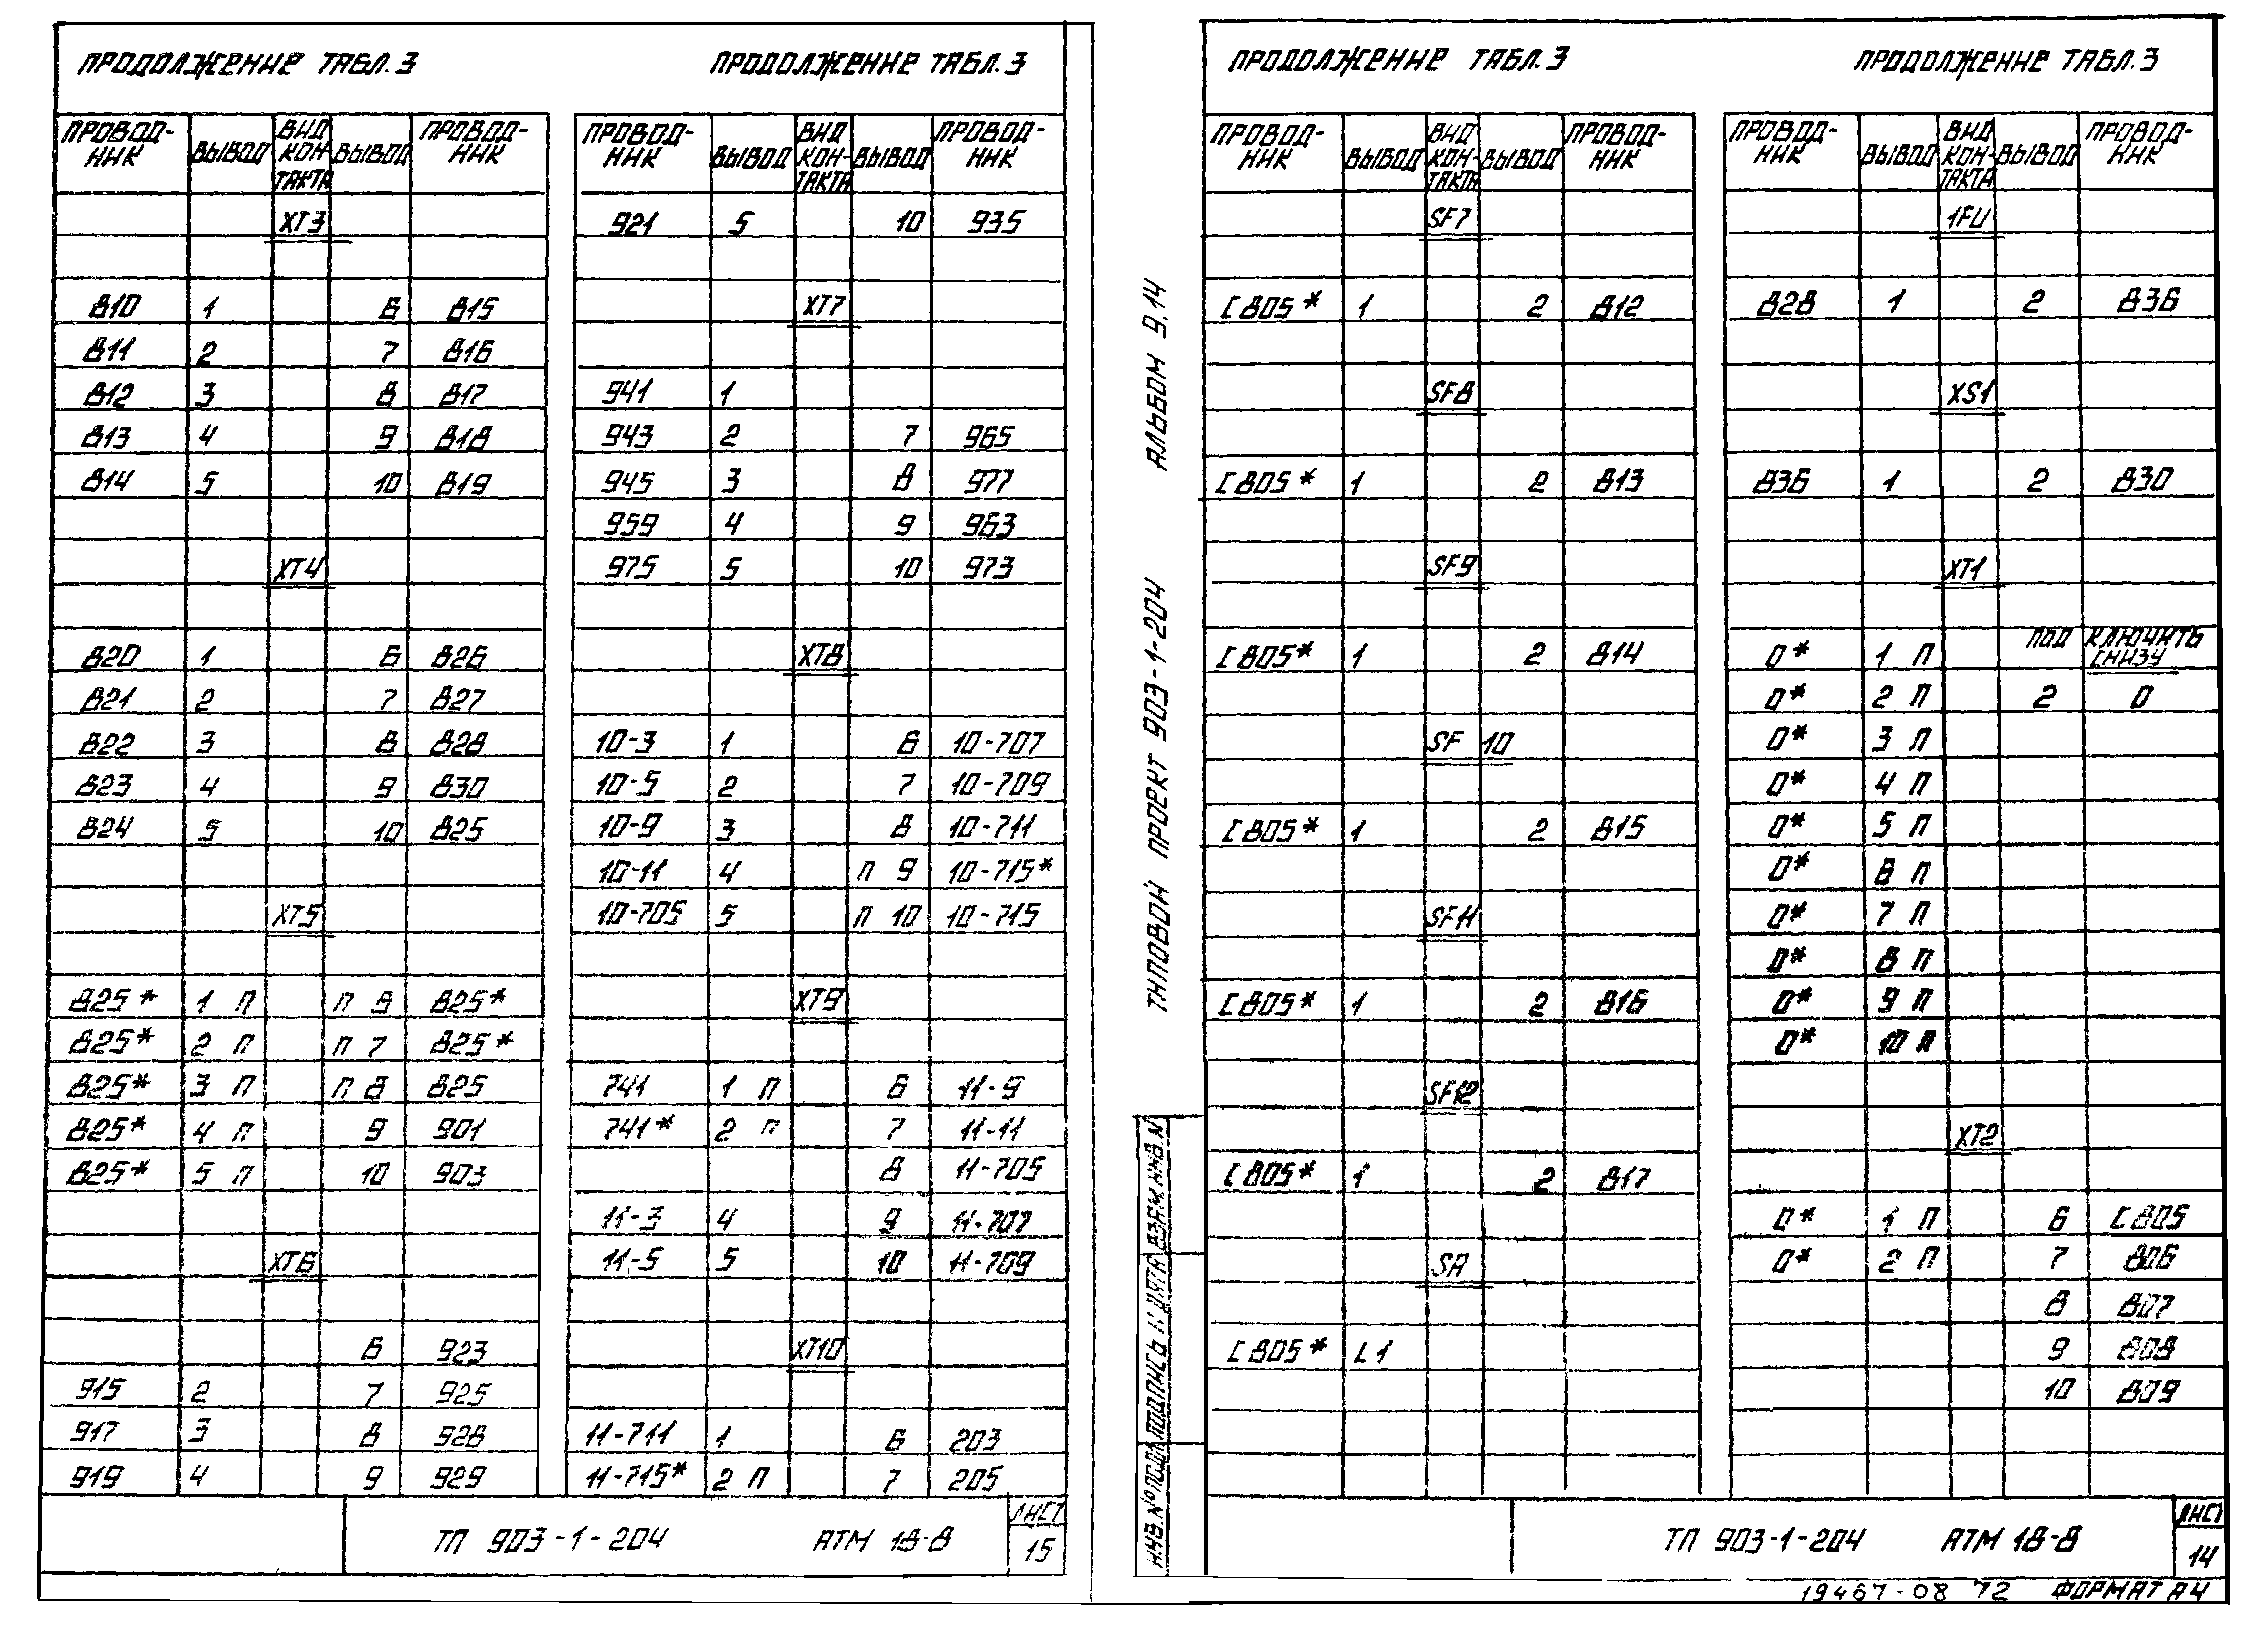 ПРОДОЛЖЕНИЕ ТАБЛ.3
ПРОВОД-НИК ВЫВОД ВИД КОН-ТАКТА ВЫВОД ПРОВОД-НИК
ХТ3
810 1 6 815
811 2 7 816
812 3 8 817
813 4 9 818
814 5 10 819
ХТ4
820 1 6 826
821 2 7 827
822 3 8 828
823 4 9 830
824 5 10 825
ХТ5
825* 1 П П 6 825*
825* 2 П П 7 825*
825* 3 П П 8 825
825* 4 П 9 901
825* 5 П 10 903
ХТ6
6 923
915 2 7 925
917 3 8 928
919 4 9 929
ПРОДОЛЖЕНИЕ ТАБЛ.3
ПРОВОД-НИК ВЫВОД ВИД КОН-ТАКТА ВЫВОД ПРОВОД-НИК
921 5 10 935
ХТ7
941 1
943 2 7 965
945 3 8 977
959 4 9 963
975 5 10 973
ХТ8
10-3 1 6 10-707
10-5 2 7 10-709
10-9 3 8 10-711
10-11 4 П 9 10-715*
10-705 5 П 10 10-715
ХТ9
741 1 П 6 11-9
741* 2 П 7 11-11
8 11-705
11-3 4 9 11-707
11-5 5 10 11-709
ХТ10
11-711 1 6 203
11-715* 2 П 7 205
ТП 903-1-204 АТМ 18-8
ЛИСТ
15
АЛЬБОМ 9.14
ТИПОВОЙ ПРОЕКТ 903-1-204
ИНВ.№ ПОДЛ.
ПОДПИСЬ И ДАТА
ВЗАМ.ИНВ.№
ПРОДОЛЖЕНИЕ ТАБЛ.3
ПРОВОД-НИК ВЫВОД ВИД КОН-ТАКТА ВЫВОД ПРОВОД-НИК
SF7
С805* 1 2 812
SF8
С805* 1 2 813
SF9
С805* 1 2 814
SF 10
С805* 1 2 815
SF11
С805* 1 2 816
SF12
С805* 1 2 817
SA
С805* L1
ПРОДОЛЖЕНИЕ ТАБЛ.3
ПРОВОД-НИК ВЫВОД ВИД КОН-ТАКТА ВЫВОД ПРОВОД-НИК
1FU
828 1 2 836
XS1
836 1 2 830
ХТ1
0* 1 П ПОД КЛЮЧИТЬ СНИЗУ
0* 2 П 2 0
0* 3 П
0* 4 П
0* 5 П
0* 6 П
0* 7 П
0* 8 П
0* 9 П
0* 10 П
ХТ2
0* 1 П 6 С805
0* 2 П 7 806
8 807
9 808
10 809
ТП 903-1-204 АТМ 18-8
ЛИСТ
14
19467-08 72 ФОРМАТ А4